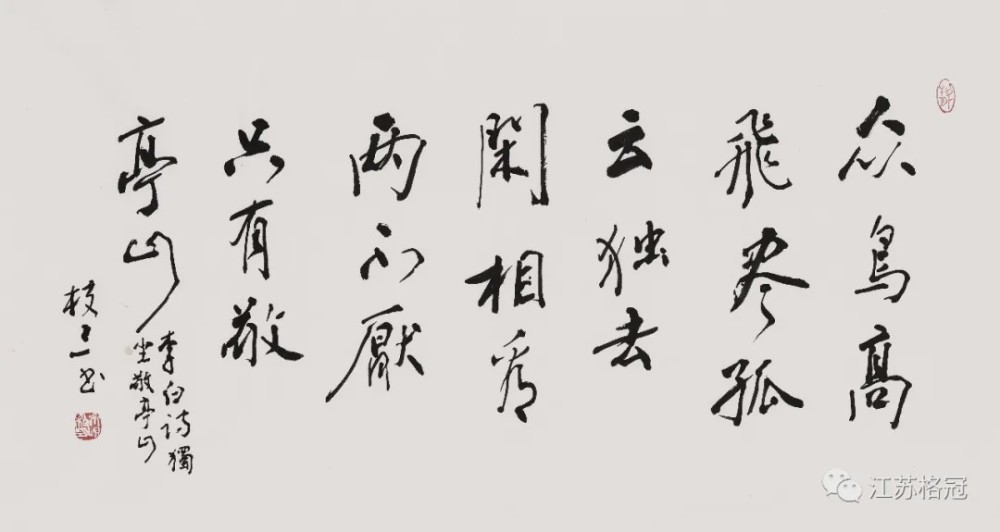 众鸟高
飛尽孤
云独去
閑相看
两不厭
只有敬
亭山
李白诗獨
坐敬亭山
枝 书
江苏格冠